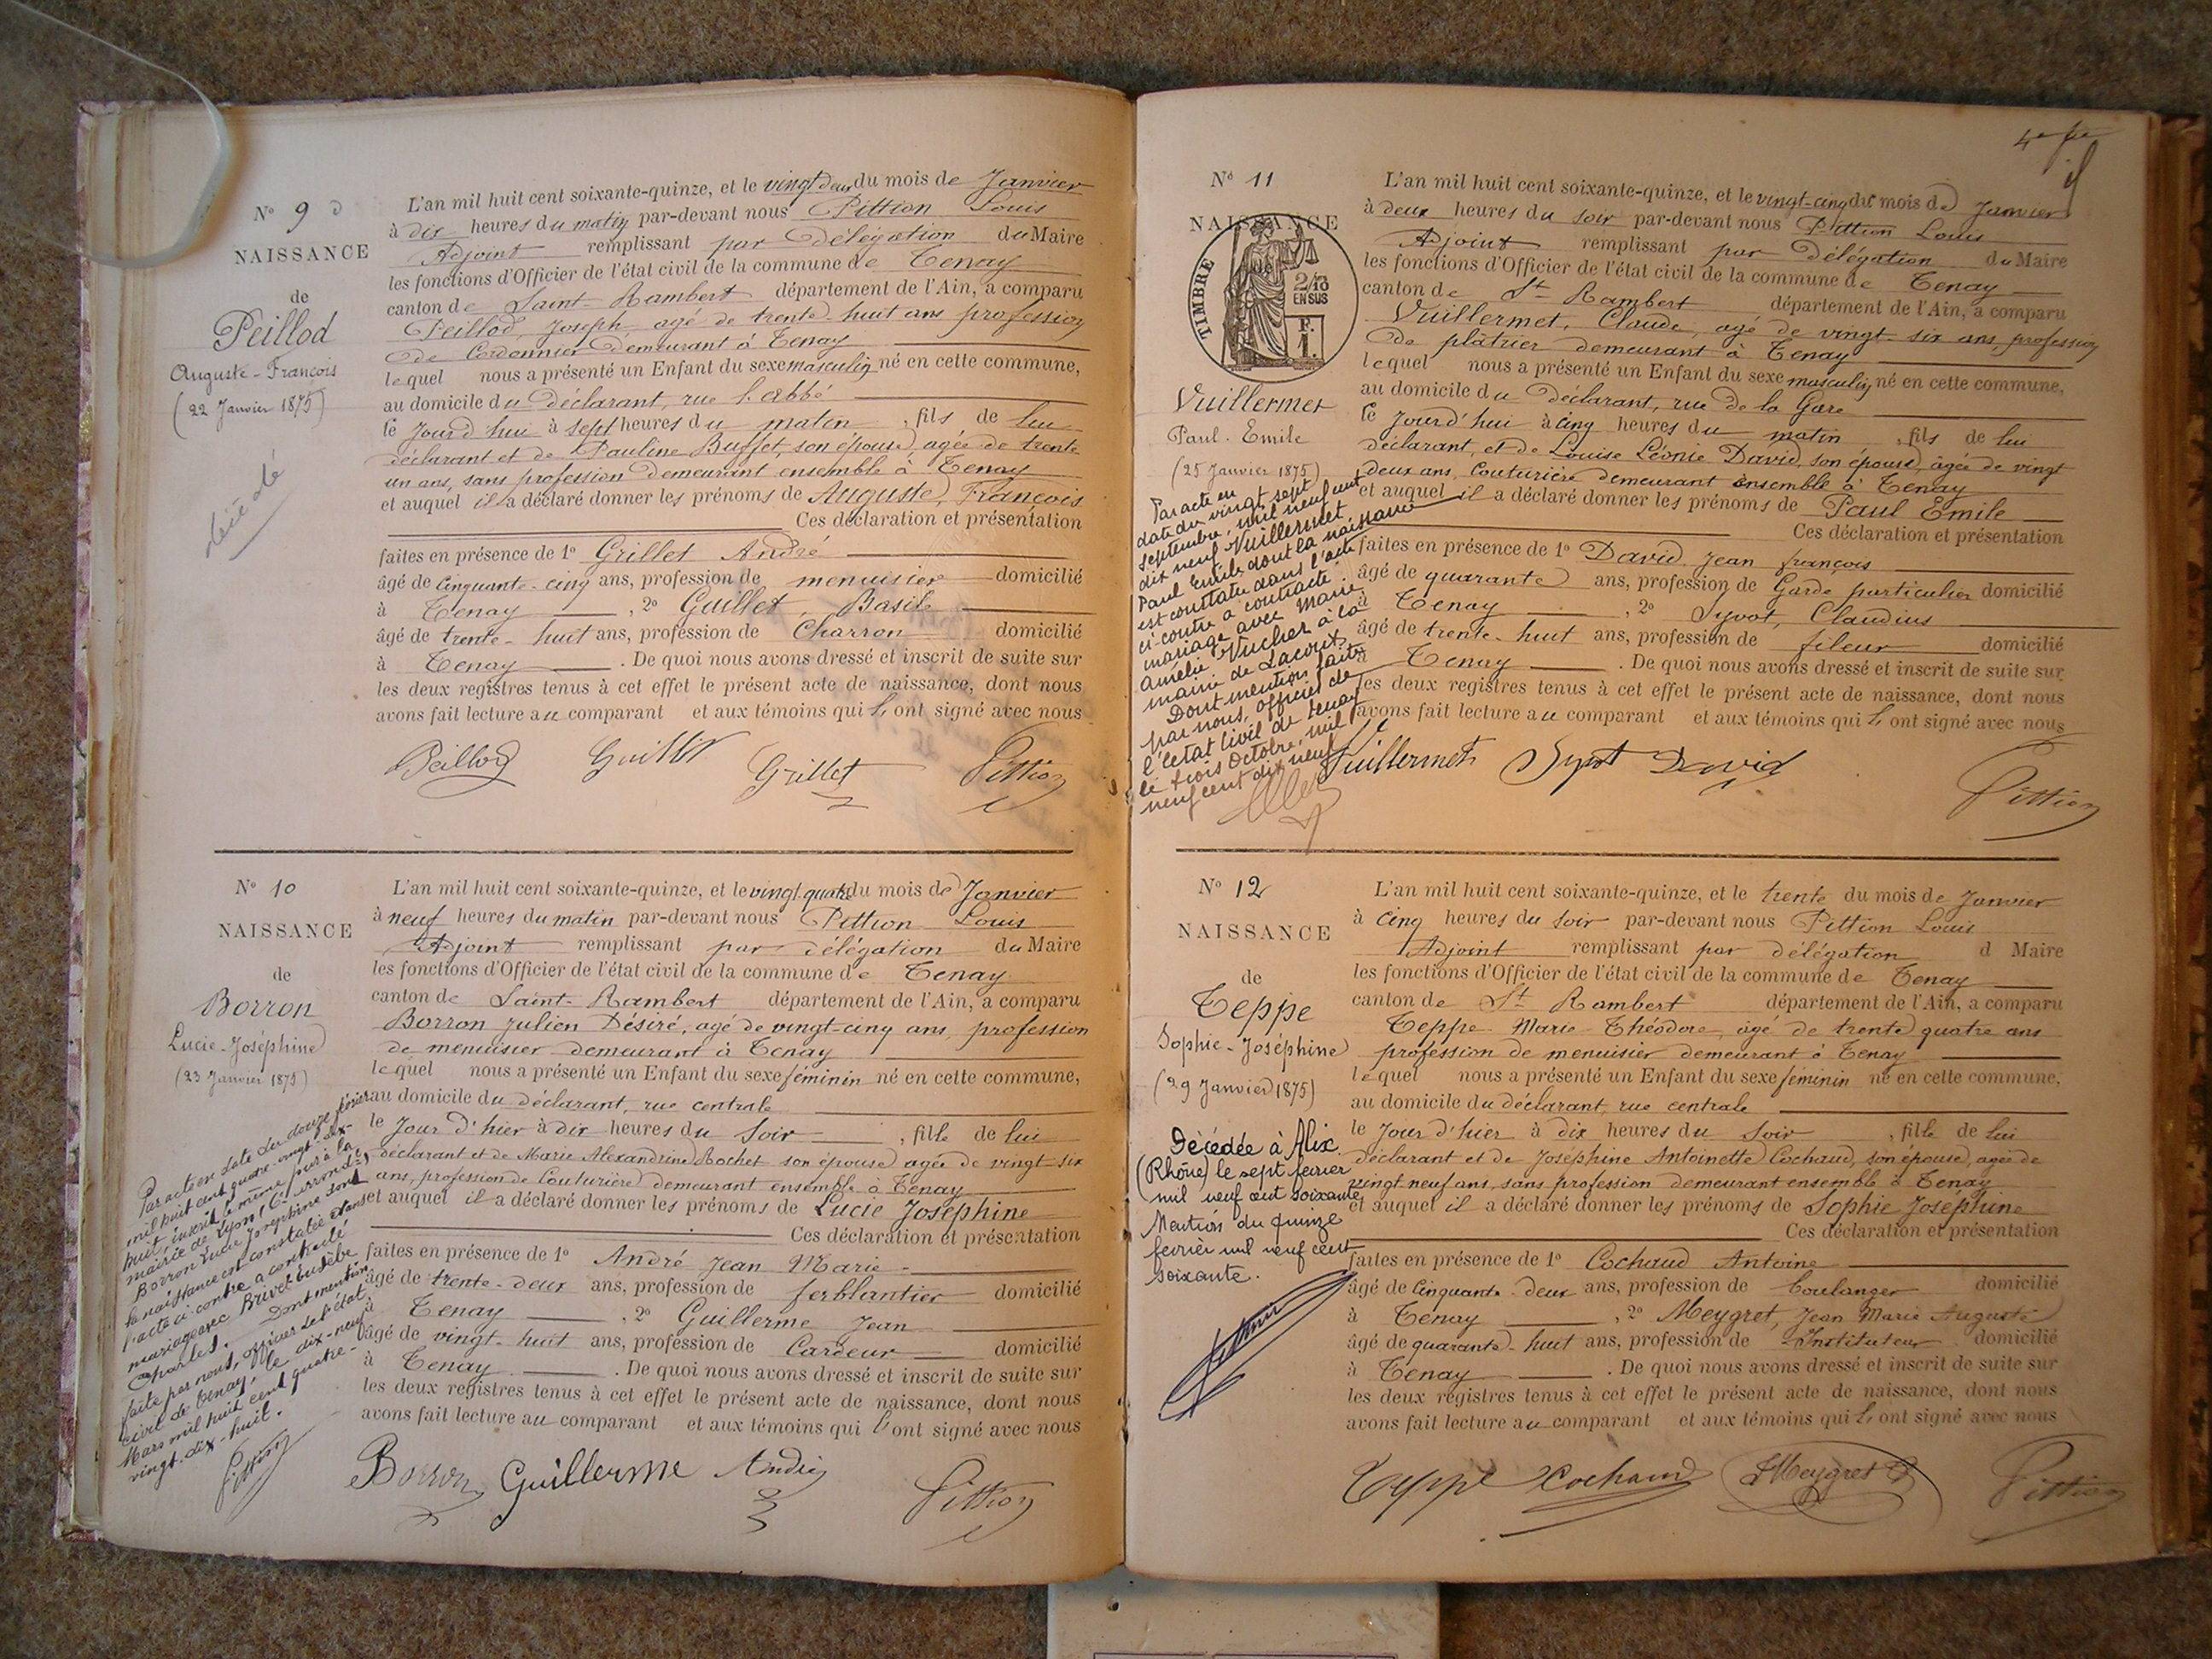 N° 9
NAISSANCE
de
Peillod
Auguste-François
(22 Janvier 1875)
décédé
L'an mil huit cent soixante-quinze, et le vingt deux du mois de Janvier
à dix heures du matin par-devant nous Pittion Louis
Adjoint remplissant par délégation du Maire
les fonctions d'Officier de l'état civil de la commune de Tenay
canton de Saint-Rambert département de l'Ain, a comparu
Peillod Joseph agé de trente-huit ans profession
de Cordonnier demeurant à Tenay
lequel nous a présenté un Enfant du sexe masculin né en cette commune,
au domicile du déclarant, rue l'abbé
le Jourd'hui à sept heures du matin, fils de lui
déclarant et de Pauline Buffet, son épouse, agée de trente
un ans, sans profession demeurant ensemble à Tenay
et auquel il a déclaré donner les prénoms de Auguste, François
Ces déclaration et présentation
faites en présence de 1° Grillet André
âgé de Cinquante-cinq ans, profession de menuisier domicilié
à Tenay, 2° Guillet, Basile
âgé de trente-huit ans, profession de Charron domicilié
à Tenay. De quoi nous avons dressé et inscrit de suite sur
les deux registres tenus à cet effet le présent acte de naissance, dont nous
avons fait lecture au comparant et aux témoins qui l'ont signé avec nous
Peillod Guillet Grillet Pittion
N° 10
NAISSANCE
de
Borron
Lucie-Joséphine
(23 Janvier 1875)
Par acte en date du douze février
mil huit cent quatre-vingt-dix-
huit, inscrit le même jour à la
mairie de Lyon (6e arrondt),
Borron Lucie Josephine dont
la naissance est constatée dans
l'acte ci-contre a contracté
mariage avec Brivet Eusèbe
Charles. Dont mention
faite par nous, officier de l'état
civil de Tenay, le dix-neuf
Mars mil huit cent quatre-
vingt-dix-huit.
Pittion
L'an mil huit cent soixante-quinze, et le vingt-quatre du mois de Janvier
à neuf heures du matin par-devant nous Pittion Louis
Adjoint remplissant par délégation du Maire
les fonctions d'Officier de l'état civil de la commune de Tenay
canton de Saint-Rambert département de l'Ain, a comparu
Borron Julien Désiré, agé de vingt-cinq ans, profession
de menuisier demeurant à Tenay
lequel nous a présenté un Enfant du sexe féminin né en cette commune,
au domicile du déclarant, rue centrale
le Jour d'hier à dix heures du soir, fille de lui
déclarant et de Marie Alexandrine Rochet son épouse agée de vingt-six
ans, profession de Couturière demeurant ensemble à Tenay
et auquel il a déclaré donner les prénoms de Lucie Joséphine
Ces déclaration et présentation
faites en présence de 1° André Jean Marie
âgé de trente-deux ans, profession de ferblantier domicilié
à Tenay, 2° Guillerme Jean
âgé de vingt-huit ans, profession de Cardeur domicilié
à Tenay. De quoi nous avons dressé et inscrit de suite sur
les deux registres tenus à cet effet le présent acte de naissance, dont nous
avons fait lecture au comparant et aux témoins qui l'ont signé avec nous
Borron Guillerme André Pittion
N° 11
NAISSANCE
de
TIMBRE
2/10
EN SUS
F.
1.
Vuillermet
Paul-Emile
(25 Janvier 1875)
Par acte en
date du vingt sept
septembre, mil neuf cent
dix neuf Vuillermet
Paul Emile, dont la naissance
est constatée dans l'acte
ci-contre a contracté
mariage avec Marie
Amélie Vucher à la
mairie de Lacoux
Dont mention faite
par nous, officier de
l'état civil de Tenay
le trois Octobre, mil
neuf cent dix neuf
L'an mil huit cent soixante-quinze, et le vingt-cinq du mois de Janvier
à deux heures du soir par-devant nous Pittion Louis
Adjoint remplissant par délégation du Maire
les fonctions d'Officier de l'état civil de la commune de Tenay
canton de St Rambert département de l'Ain, a comparu
Vuillermet, Claude, agé de vingt-six ans, profession
de plâtrier demeurant à Tenay
lequel nous a présenté un Enfant du sexe masculin né en cette commune,
au domicile du déclarant, rue de la Gare
le Jourd'hui à cinq heures du matin, fils de lui
déclarant, et de Louise Léonie David, son épouse, âgée de vingt
deux ans, Couturière demeurant ensemble à Tenay
et auquel il a déclaré donner les prénoms de Paul Emile
Ces déclaration et présentation
faites en présence de 1° David Jean françois
âgé de quarante ans, profession de Garde particulier domicilié
à Tenay, 2° Syvot, Claudius
âgé de trente-huit ans, profession de fileur domicilié
à Tenay. De quoi nous avons dressé et inscrit de suite sur
les deux registres tenus à cet effet le présent acte de naissance, dont nous
avons fait lecture au comparant et aux témoins qui l'ont signé avec nous
Vuillermet Syvot David Pittion
N° 12
NAISSANCE
de
Teppe
Sophie-Joséphine
(29 Janvier 1875)
Décédée à Alix
(Rhône) le sept février
mil neuf cent soixante
Mention du quinze
février mil neuf cent
soixante.
L'an mil huit cent soixante-quinze, et le trente du mois de Janvier
à cinq heures du soir par-devant nous Pittion Louis
Adjoint remplissant par délégation d Maire
les fonctions d'Officier de l'état civil de la commune de Tenay
canton de St Rambert département de l'Ain, a comparu
Teppe Marie Théodore, âgé de trente quatre ans
profession de menuisier demeurant à Tenay
lequel nous a présenté un Enfant du sexe féminin né en cette commune,
au domicile du déclarant, rue centrale
le Jour d'hier à dix heures du soir, fille de lui
déclarant et de Joséphine Antoinette Cochaud, son épouse, agée de
vingt-neuf ans, sans profession demeurant ensemble à Tenay
et auquel il a déclaré donner les prénoms de Sophie Joséphine
Ces déclaration et présentation
faites en présence de 1° Cochaud Antoine
âgé de Cinquante-deux ans, profession de boulanger domicilié
à Tenay, 2° Meygret, Jean Marie Auguste
âgé de quarante-huit ans, profession de Instituteur domicilié
à Tenay. De quoi nous avons dressé et inscrit de suite sur
les deux registres tenus à cet effet le présent acte de naissance, dont nous
avons fait lecture au comparant et aux témoins qui l'ont signé avec nous
Teppe Cochaud Meygret Pittion